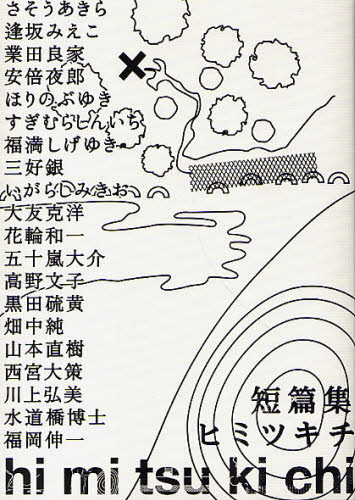 さそうあきら
逢坂みえこ
業田良家
安倍夜郎
ほりのぶゆき
すぎむらしんいち
福満しげゆき
三好銀
いがらしみきお
大友克洋
花輪和一
五十嵐大介
高野文子
黒田硫黄
畑中純
山本直樹
西宮大策
川上弘美
水道橋博士
福岡伸一
短篇集
ヒミツキチ
hi mi tsu ki chi